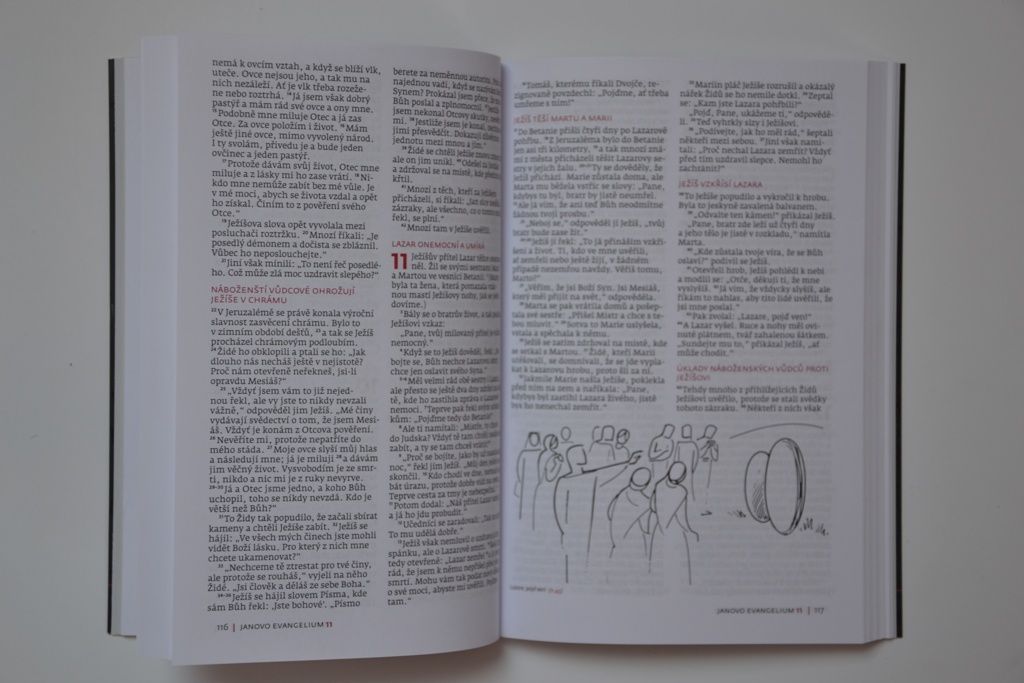 nemá k ovcím vztah, a když se blíží vlk,
uteče. Ovce nejsou jeho, a tak mu na
nich nezáleží. Ať je vlk třeba rozeže-
ne nebo roztrhá. Já jsem však dobrý
pastýř a mám rád své ovce a ony mne.
Podobně mne miluje Otec a já zas
Otce. Za ovce položím i život. Mám
ještě jiné ovce, mimo vyvolený národ.
I ty svolám, přivedu je a bude jeden
ovčinec a jeden pastýř.
Protože dávám svůj život, Otec mne
miluje a z lásky mi ho zase vrátí. Ni-
kdo mne nemůže zabít bez mé vůle. Je
v mé moci, abych se života vzdal a opět
ho získal. Činím to z pověření svého
Otce."
Ježíšova slova opět vyvolala mezi
posluchači roztržku. Mnozí říkali: „Je
posedlý démonem a dočista se zbláznil.
Vůbec ho neposlouchejte."
Jiní však mínili: „To není řeč posedlé-
ho. Což může zlá moc uzdravit slepého?"
NÁBOŽENŠTÍ VŮDCOVÉ OHROŽUJÍ
JEŽÍŠE V CHRÁMU
V Jeruzalémě se právě konala výroční
slavnost zasvěcení chrámu. Bylo to
v zimním období dešťů, a tak se Ježíš
procházel chrámovým podloubím.
Židé ho obklopili a ptali se ho: „Jak
dlouho nás necháš ještě v nejistotě?
Proč nám otevřeně neřekneš, jsi-li
opravdu Mesiáš?"
„Vždyť jsem vám to již nejed-
nou řekl, ale vy jste to nikdy nevzali
vážně," odpověděl jim Ježíš. „Mé činy
vydávají svědectví o tom, že jsem Mesi-
áš. Vždyť je konám z Otcova pověření.
Nevěříte mi, protože nepatříte do
mého stáda. Moje ovce slyší můj hlas
a následují mne; já je miluji a dávám
jim věčný život. Vysvobodím je ze smr-
ti, nikdo a nic mi je z ruky nevyrve.
Já a Otec jsme jedno, a koho Bůh
uchopil, toho se nikdy nevzdá. Kdo je
větší než Bůh?"
To Židy tak popudilo, že začali sbírat
kameny a chtěli Ježíše zabít. Ježíš se
hájil: „Ve všech mých činech jste mohli
vidět Boží lásku. Pro který z nich mne
chcete ukamenovat?"
„Nechceme tě ztrestat pro tvé činy,
ale protože se rouháš," vyjeli na něho
Židé. „Jsi člověk a děláš ze sebe Boha."
Ježíš se hájil slovem Písma, kde
sám Bůh řekl: ‚Jste bohové'. „Písmo
116 | JANOVO EVANGELIUM 11
berete za neměnnou autoritu. Proč
najednou vadí, když se nazývám
Synem? Prokázal jsem přece, že mne
Bůh poslal a zplnomocnil.
jsem nekonal Otcovy skutky,
mi. Jestliže jsem je konal,
jimi přesvědčit. Dokazují
jednotu mezi mnou a jím."
Židé se chtěli Ježíše znovu
ale on jim unikl. Odešel za
a zdržoval se na místě, kde
křtil.
Mnozí z těch, kteří za Ježíšem
přicházeli, si říkali: „Jan sice nedělal
zázraky, ale všechno, co o tomto
řekl, se plní."
Mnozí tam v Ježíše uvěřili.
LAZAR ONEMOCNÍ A UMÍRÁ
11 Ježíšův přítel Lazar těžce onemoc-
něl. Žil se svými sestrami
a Martou ve vesnici Betanii.
byla ta žena, která pomazala
nou mastí Ježíšovy nohy, jak
dovíme.)
Bály se o bratrův život, a tak
Ježíšovi vzkaz:
„Pane, tvůj milovaný přítel je
nemocný."
Když se to Ježíš dověděl, řekl:
bojte se, Bůh nechce Lazarovu smrt,
chce jen oslavit svého Syna."
Měl velmi rád obě sestry i Lazara,
ale přesto se ještě dva dny zdržel
kde ho zastihla zpráva o Lazarově
nemoci. Teprve pak řekl svým učední-
kům: „Pojďme tedy do Betanie."
Ale ti namítali: „Mistře,
do Judska? Vždyť tě tam chtěli
zabít, a ty se tam chceš vrátit?"
„Proč se bojíte, jako by už
noc," řekl jim Ježíš. „Můj den
skončil. Kdo chodí ve dne, nemusí se
bát úrazu, protože dobře vidí
Teprve cesta za tmy je nebezpečná."
Potom dodal: „Náš přítel Lazar
a já ho jdu probudit."
Učedníci se zaradovali:
To mu udělá dobře."
Ježíš však nemluvil o
spánku, ale o Lazarově smrti.
tedy otevřeně: „Lazar zemřel
rád, že jsem k němu nepřišel před
smrtí. Mohu vám tak podat
o své moci, abyste mi uvěřili.
tam."
Tomáš, kterému říkali Dvojče, re-
zignovaně povzdechl: „Pojďme, ať třeba
umřeme s ním!"
JEŽÍŠ TĚŠÍ MARTU A MARII
Do Betanie přišli čtyři dny po Lazarově
pohřbu. Z Jeruzaléma bylo do Betanie
jen asi tři kilometry, a tak mnozí zná-
mí z města přicházeli těšit Lazarovy ses-
try v jejich žalu. Ty se dověděly, že
Ježíš přichází. Marie zůstala doma, ale
Marta mu běžela vstříc se slovy: „Pane,
kdybys tu byl, bratr by jistě neumřel.
Ale já vím, že ani teď Bůh neodmítne
žádnou tvoji prosbu."
„Neboj se," odpověděl jí Ježíš, „tvůj
bratr bude zase žít."
Ježíš jí řekl: „To já přináším vzkří-
šení a život. Ti, kdo ve mne uvěřili,
ať zemřeli nebo ještě žijí, v žádném
případě nezemřou navždy. Věříš tomu,
Marto?"
„Věřím, že jsi Boží Syn. Jsi Mesiáš,
který měl přijít na svět," odpověděla.
Marta se pak vrátila domů a pošep-
tala své sestře: „Přišel Mistr a chce s te-
bou mluvit." Sotva to Marie uslyšela,
vstala a spěchala k němu.
Ježíš se zatím zdržoval na místě, kde
se setkal s Martou. Židé, kteří Marii
utěšovali, se domnívali, že se jde vypla-
kat k Lazarovu hrobu, proto šli za ní.
Jakmile Marie našla Ježíše, poklekla
před ním na zem a naříkala: „Pane,
kdybys byl zastihl Lazara živého, jistě
bys ho nenechal zemřít."
Mariin pláč Ježíše rozrušil a okázalý
nářek Židů se ho nemile dotkl. Zeptal
se: „Kam jste Lazara pohřbili?"
„Pojď, Pane, ukážeme ti," odpovědě-
li. Teď vyhrkly slzy i Ježíšovi.
„Podívejte, jak ho měl rád," šeptali
někteří mezi sebou. Jiní však namí-
tali: „Proč nechal Lazara zemřít? Vždyť
před tím uzdravil slepce. Nemohl ho
zachránit?"
JEŽÍŠ VZKŘÍSÍ LAZARA
To Ježíše popudilo a vykročil k hrobu.
Byla to jeskyně zavalená balvanem.
„Odvalte ten kámen!" přikázal Ježíš.
„Pane, bratr zde leží už čtyři dny
a jeho tělo je jistě v rozkladu," namítla
Marta.
„Kde zůstala tvoje víra, že se Bůh
oslaví?" podivil se Ježíš.
Otevřeli hrob, Ježíš pohlédl k nebi
a modlil se: „Otče, děkuji ti, že mne
vyslyšíš. Já vím, že vždycky slyšíš, ale
říkám to nahlas, aby tito lidé uvěřili, že
jsi mne poslal."
Pak zvolal: „Lazare, pojď ven!"
A Lazar vyšel. Ruce a nohy měl ovi-
nuté plátnem, tvář zahalenou šátkem.
„Sundejte mu to," přikázal Ježíš, „ať
může chodit."
ÚKLADY NÁBOŽENSKÝCH VŮDCŮ PROTI
JEŽÍŠOVI
Tehdy mnoho z přihlížejících Židů
Ježíšovi uvěřilo, protože se stali svědky
tohoto zázraku. Někteří z nich však
JANOVO EVANGELIUM 11 | 117